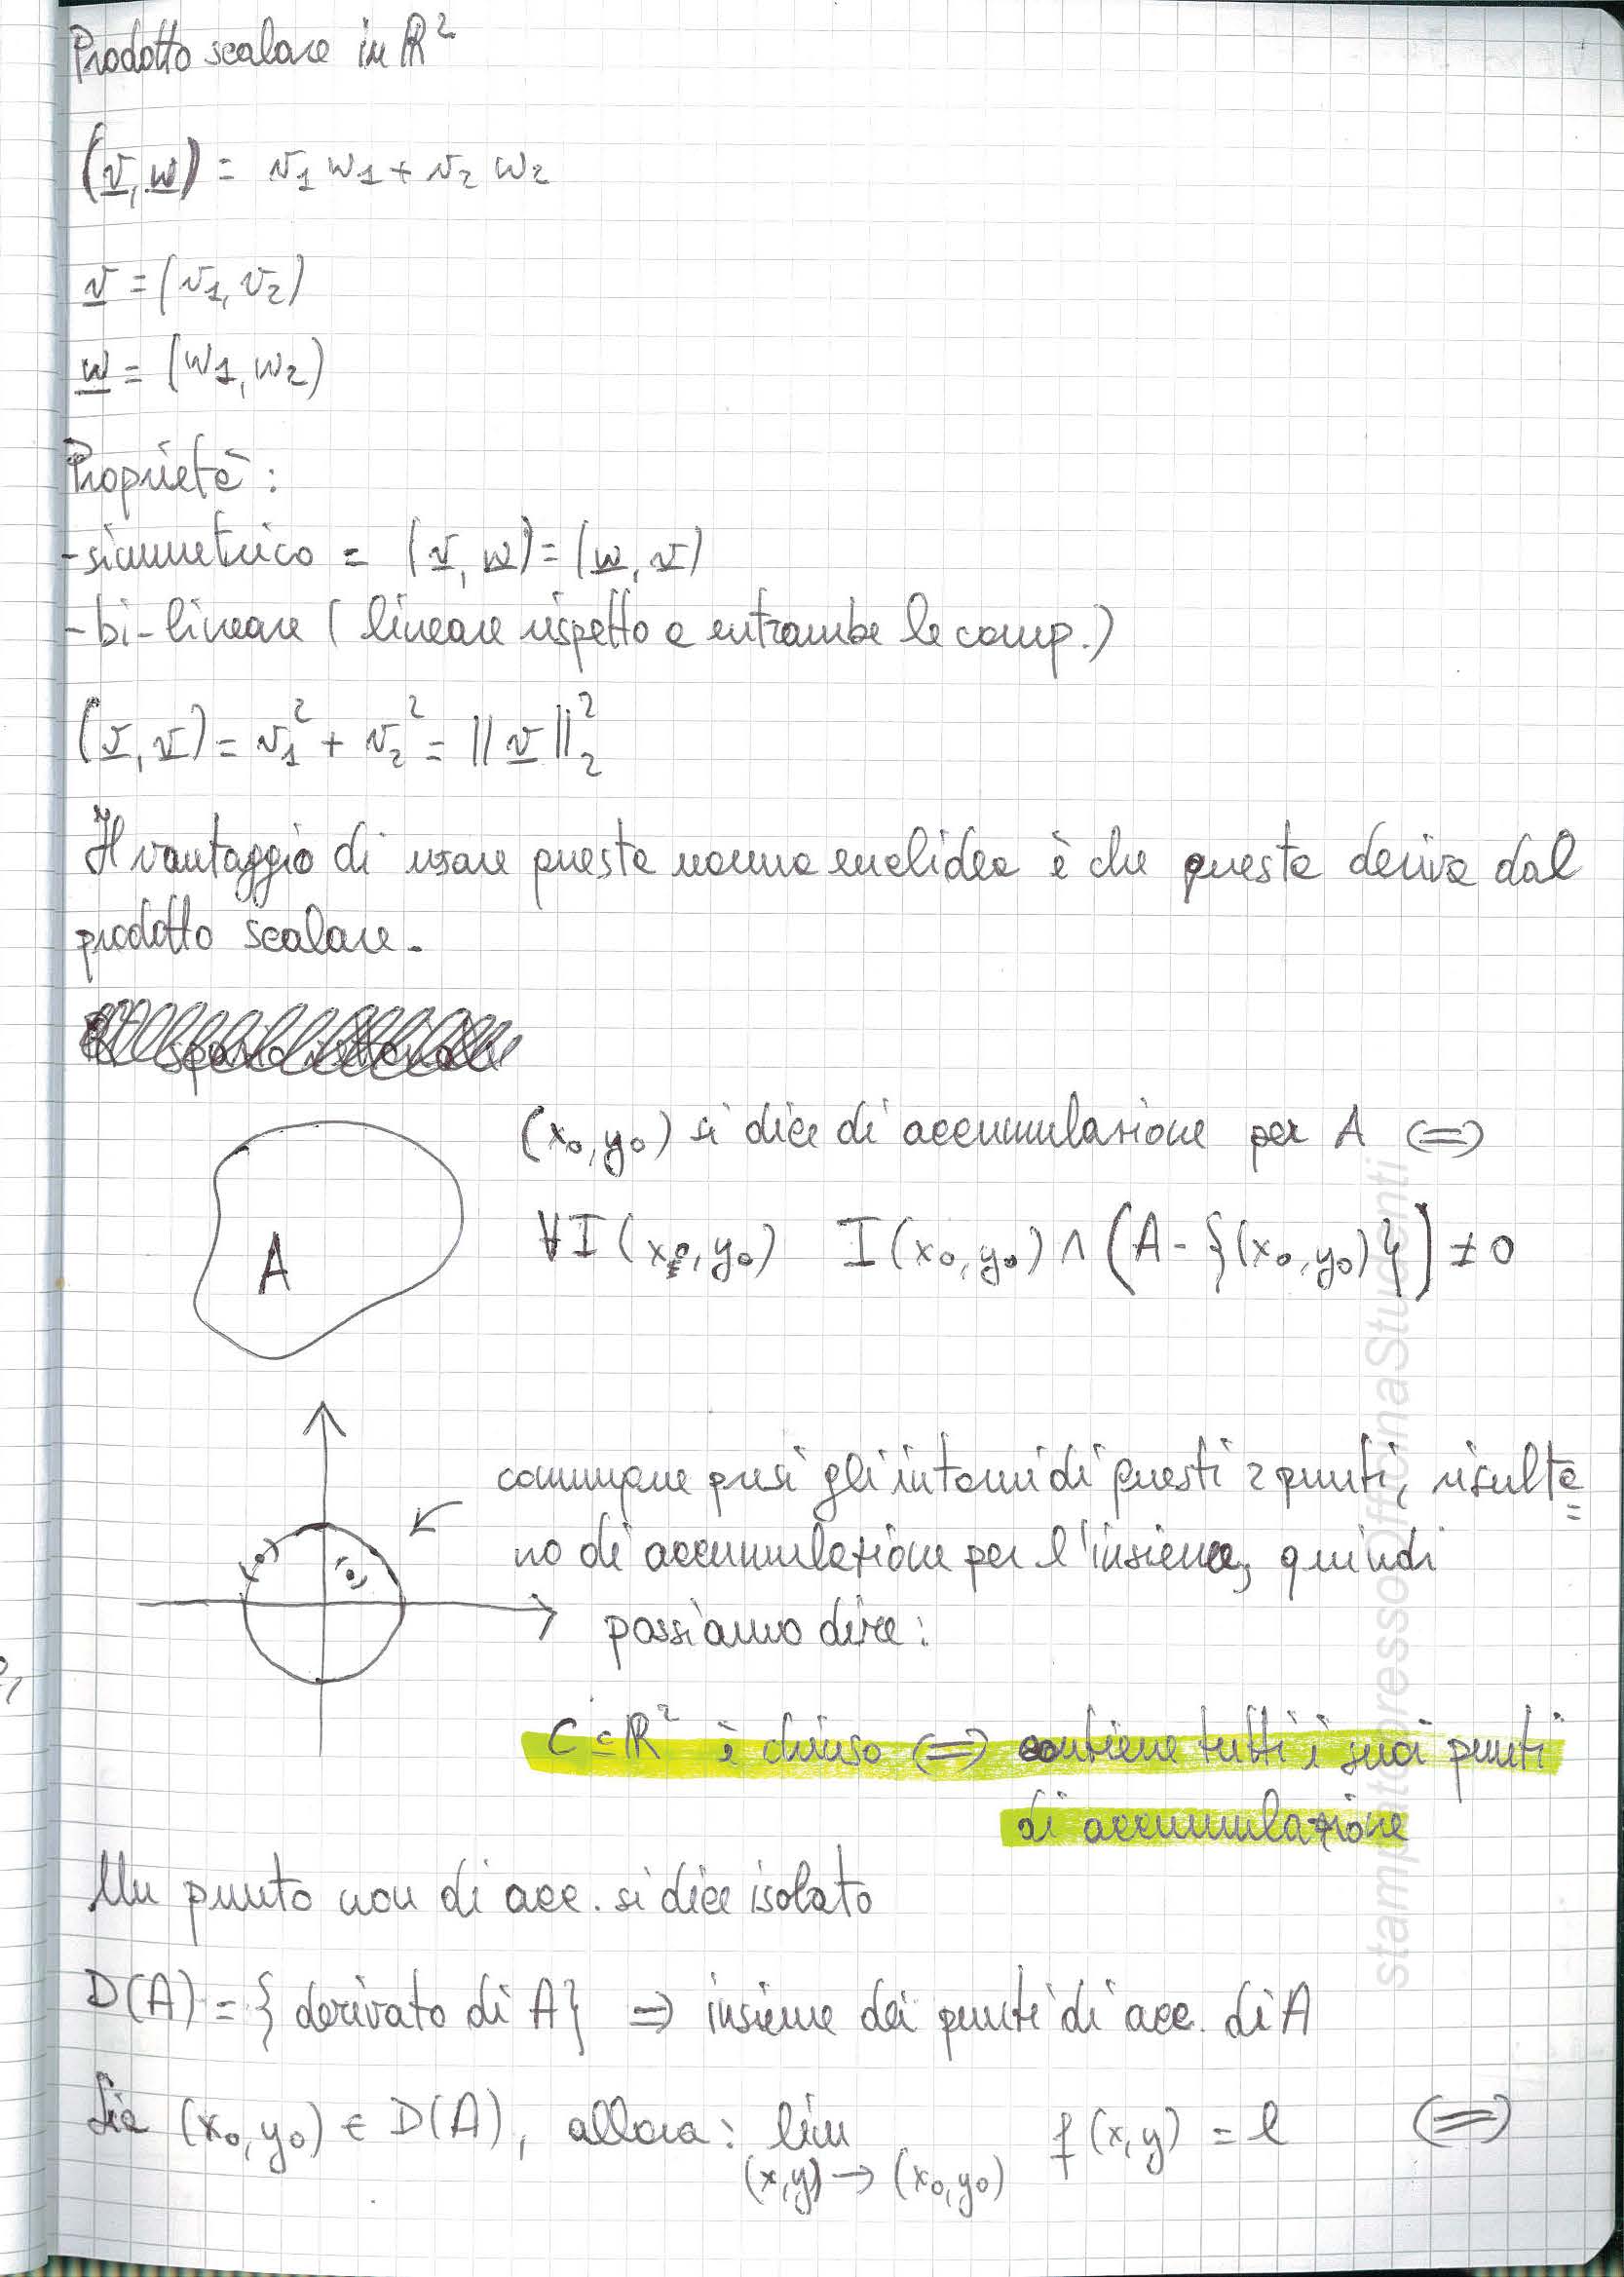 Prodotto scalare in ℝ²
(v, w) = v₁ w₁ + v₂ w₂
v = (v₁, v₂)
w = (w₁, w₂)
Proprietà:
- simmetrico = (v, w) = (w, v)
- bi-lineare (lineare rispetto a entrambe le comp.)
(v, v) = v₁² + v₂² = ||v||₂²
Il vantaggio di usare questa norma euclidea è che questa deriva dal
prodotto scalare.
(x₀, y₀) si dice di accumulazione per A ⟺
A
∀I(x₀, y₀) I(x₀, y₀) ∧ (A - {(x₀, y₀)}) ≠ 0
comunque presi gli intorni di questi 2 punti, risulta=
no di accumulazione per l'insieme, quindi
possiamo dire:
C ⊆ ℝ² è chiuso ⟺ contiene tutti i suoi punti
di accumulazione
Un punto non di acc. si dice isolato
D(A) = {derivato di A} ⟹ insieme dei punti di acc. di A
Sia (x₀, y₀) ∈ D(A), allora: lim f(x,y) = l ⟺
(x,y) → (x₀, y₀)
stampato presso OfficinaStudenti